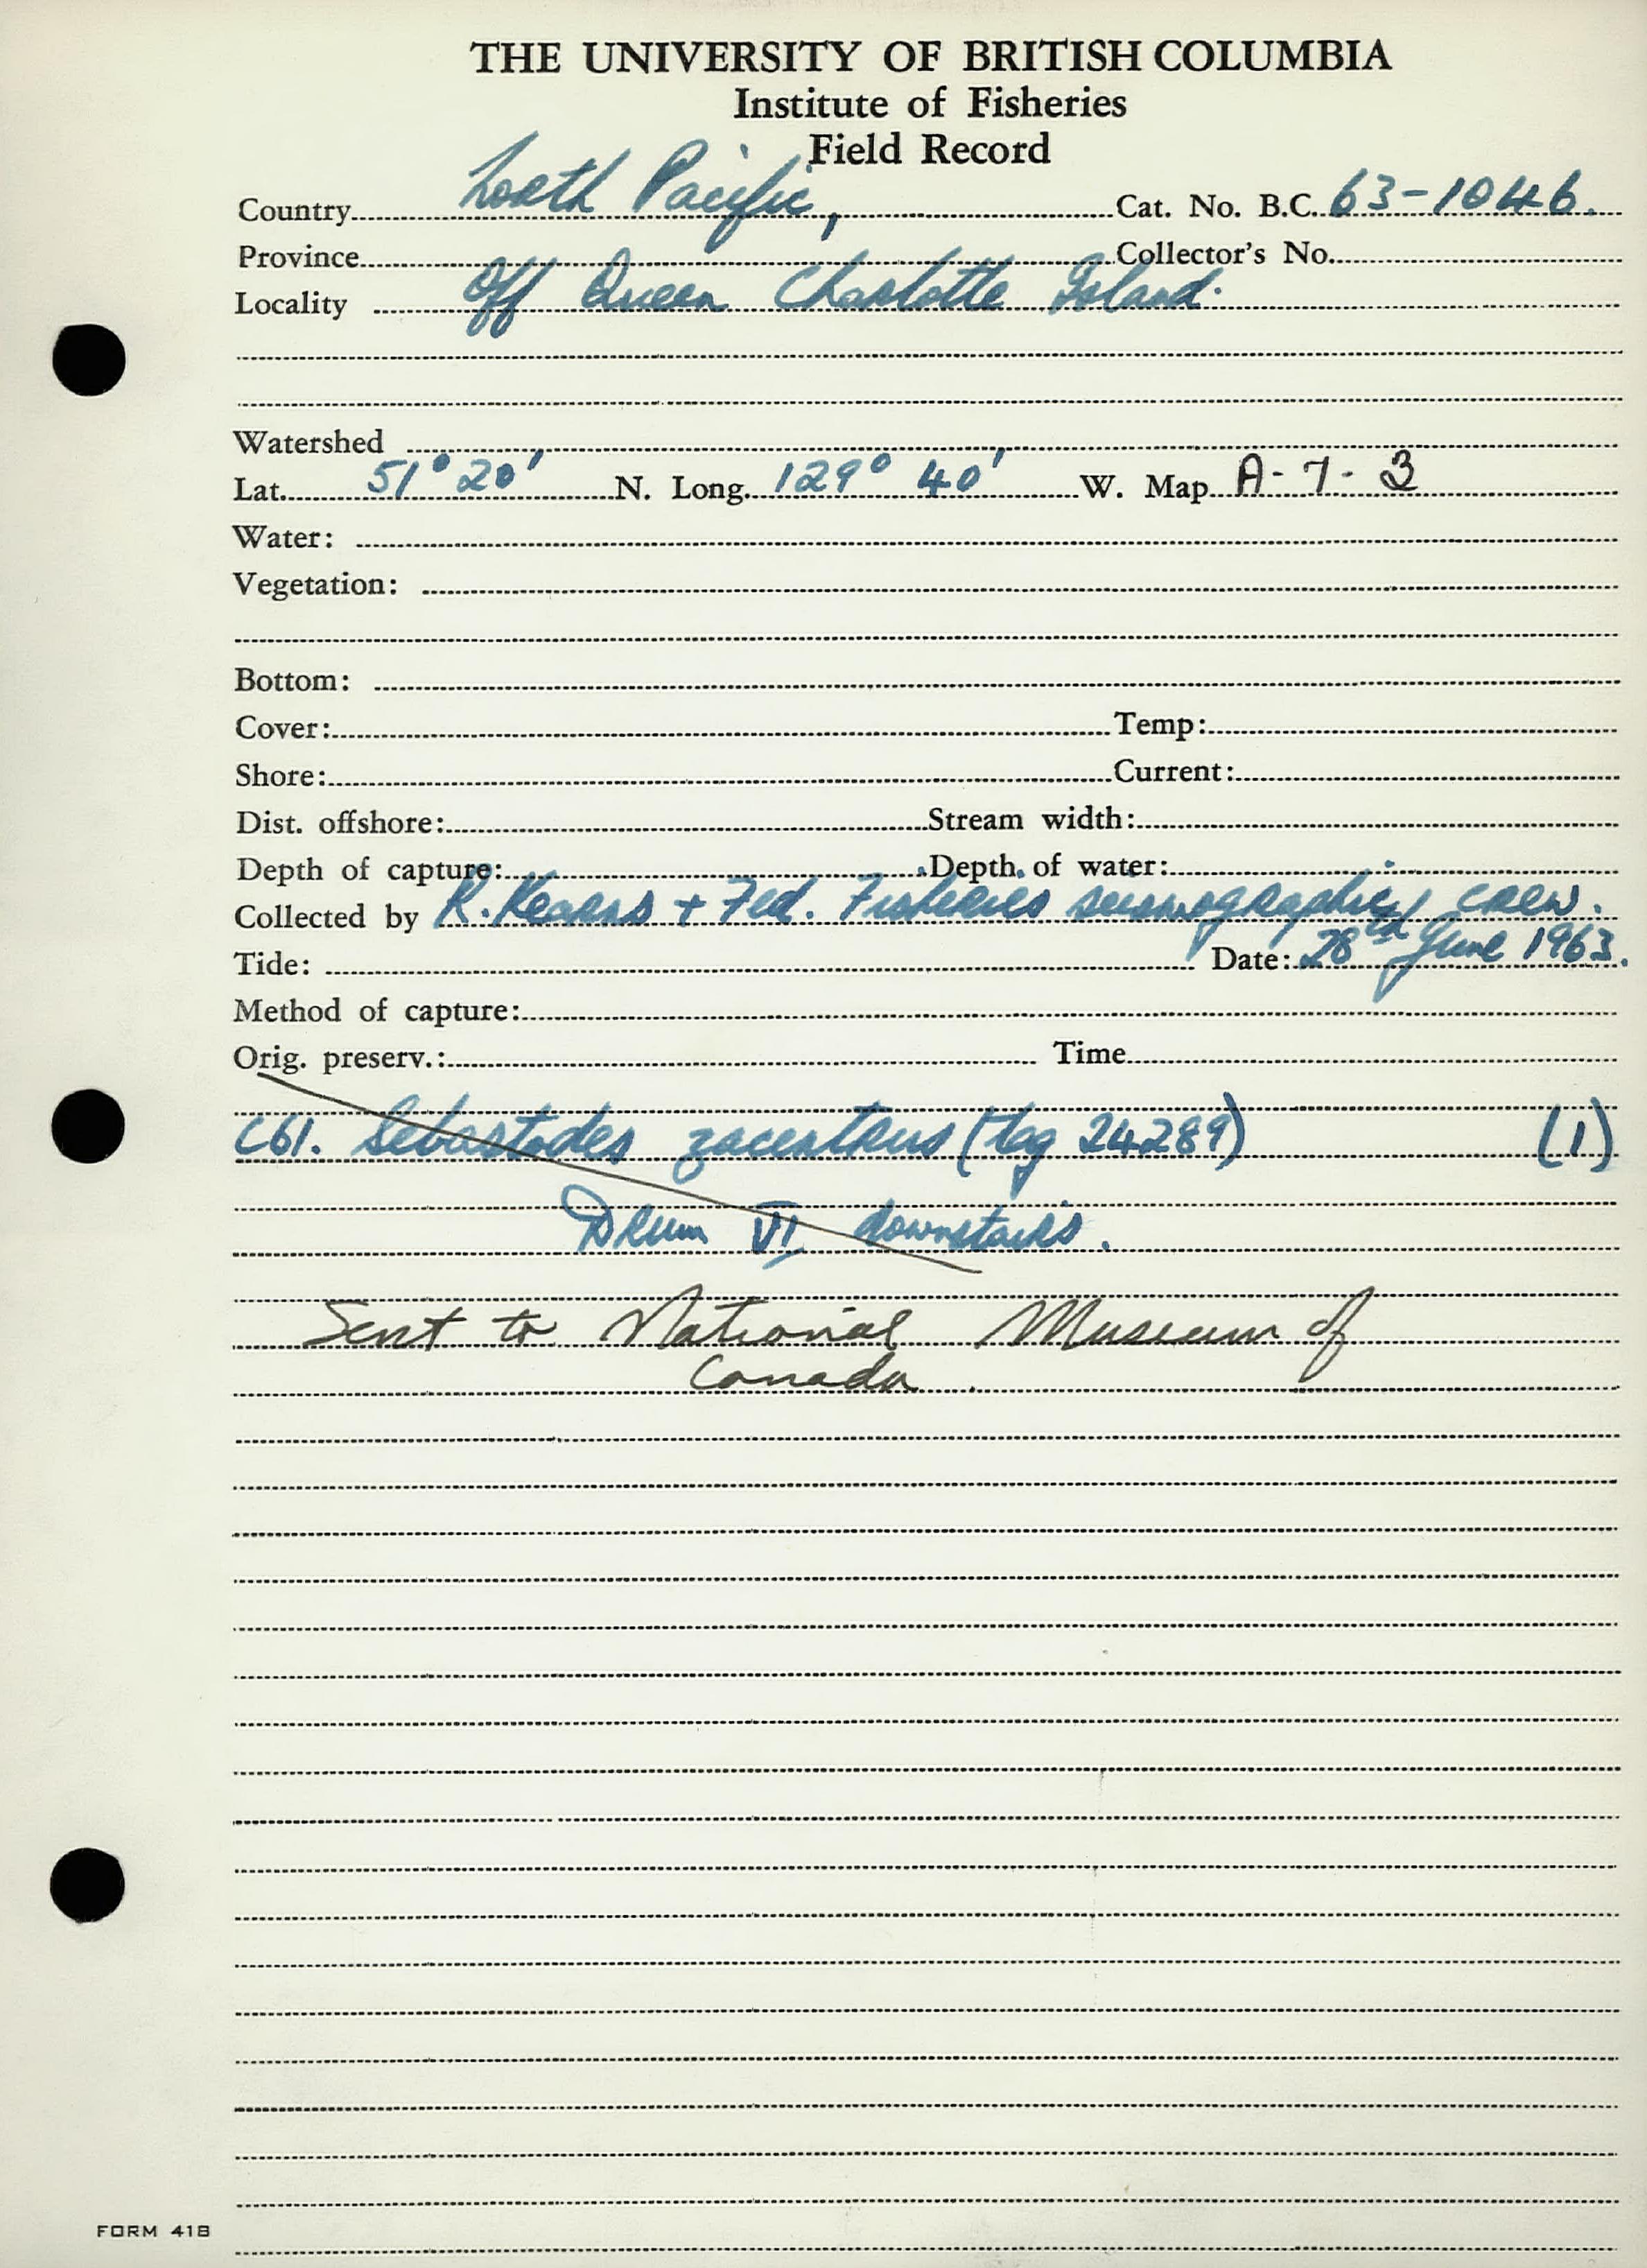 THE UNIVERSITY OF BRITISH COLUMBIA
Institute of Fisheries
Field Record
Country North Pacific, Cat. No. B.C. 63-1046.
Province Collector's No.
Locality Off Queen Charlotte Island.
Watershed
Lat. 51° 20' N. Long. 129° 40' W. Map A-7-3
Water:
Vegetation:
Bottom:
Cover: Temp:
Shore: Current:
Dist. offshore: Stream width:
Depth of capture: Depth of water:
Collected by R. Kearns + Fed. Fisheries seismographic crew.
Tide: Date: 28th June 1963.
Method of capture:
Orig. preserv.: Time
C61. Sebastodes zacentrus (tag 24289) (1)
Drum VI downstairs.
Sent to National Museum of
Canada.
FORM 41B